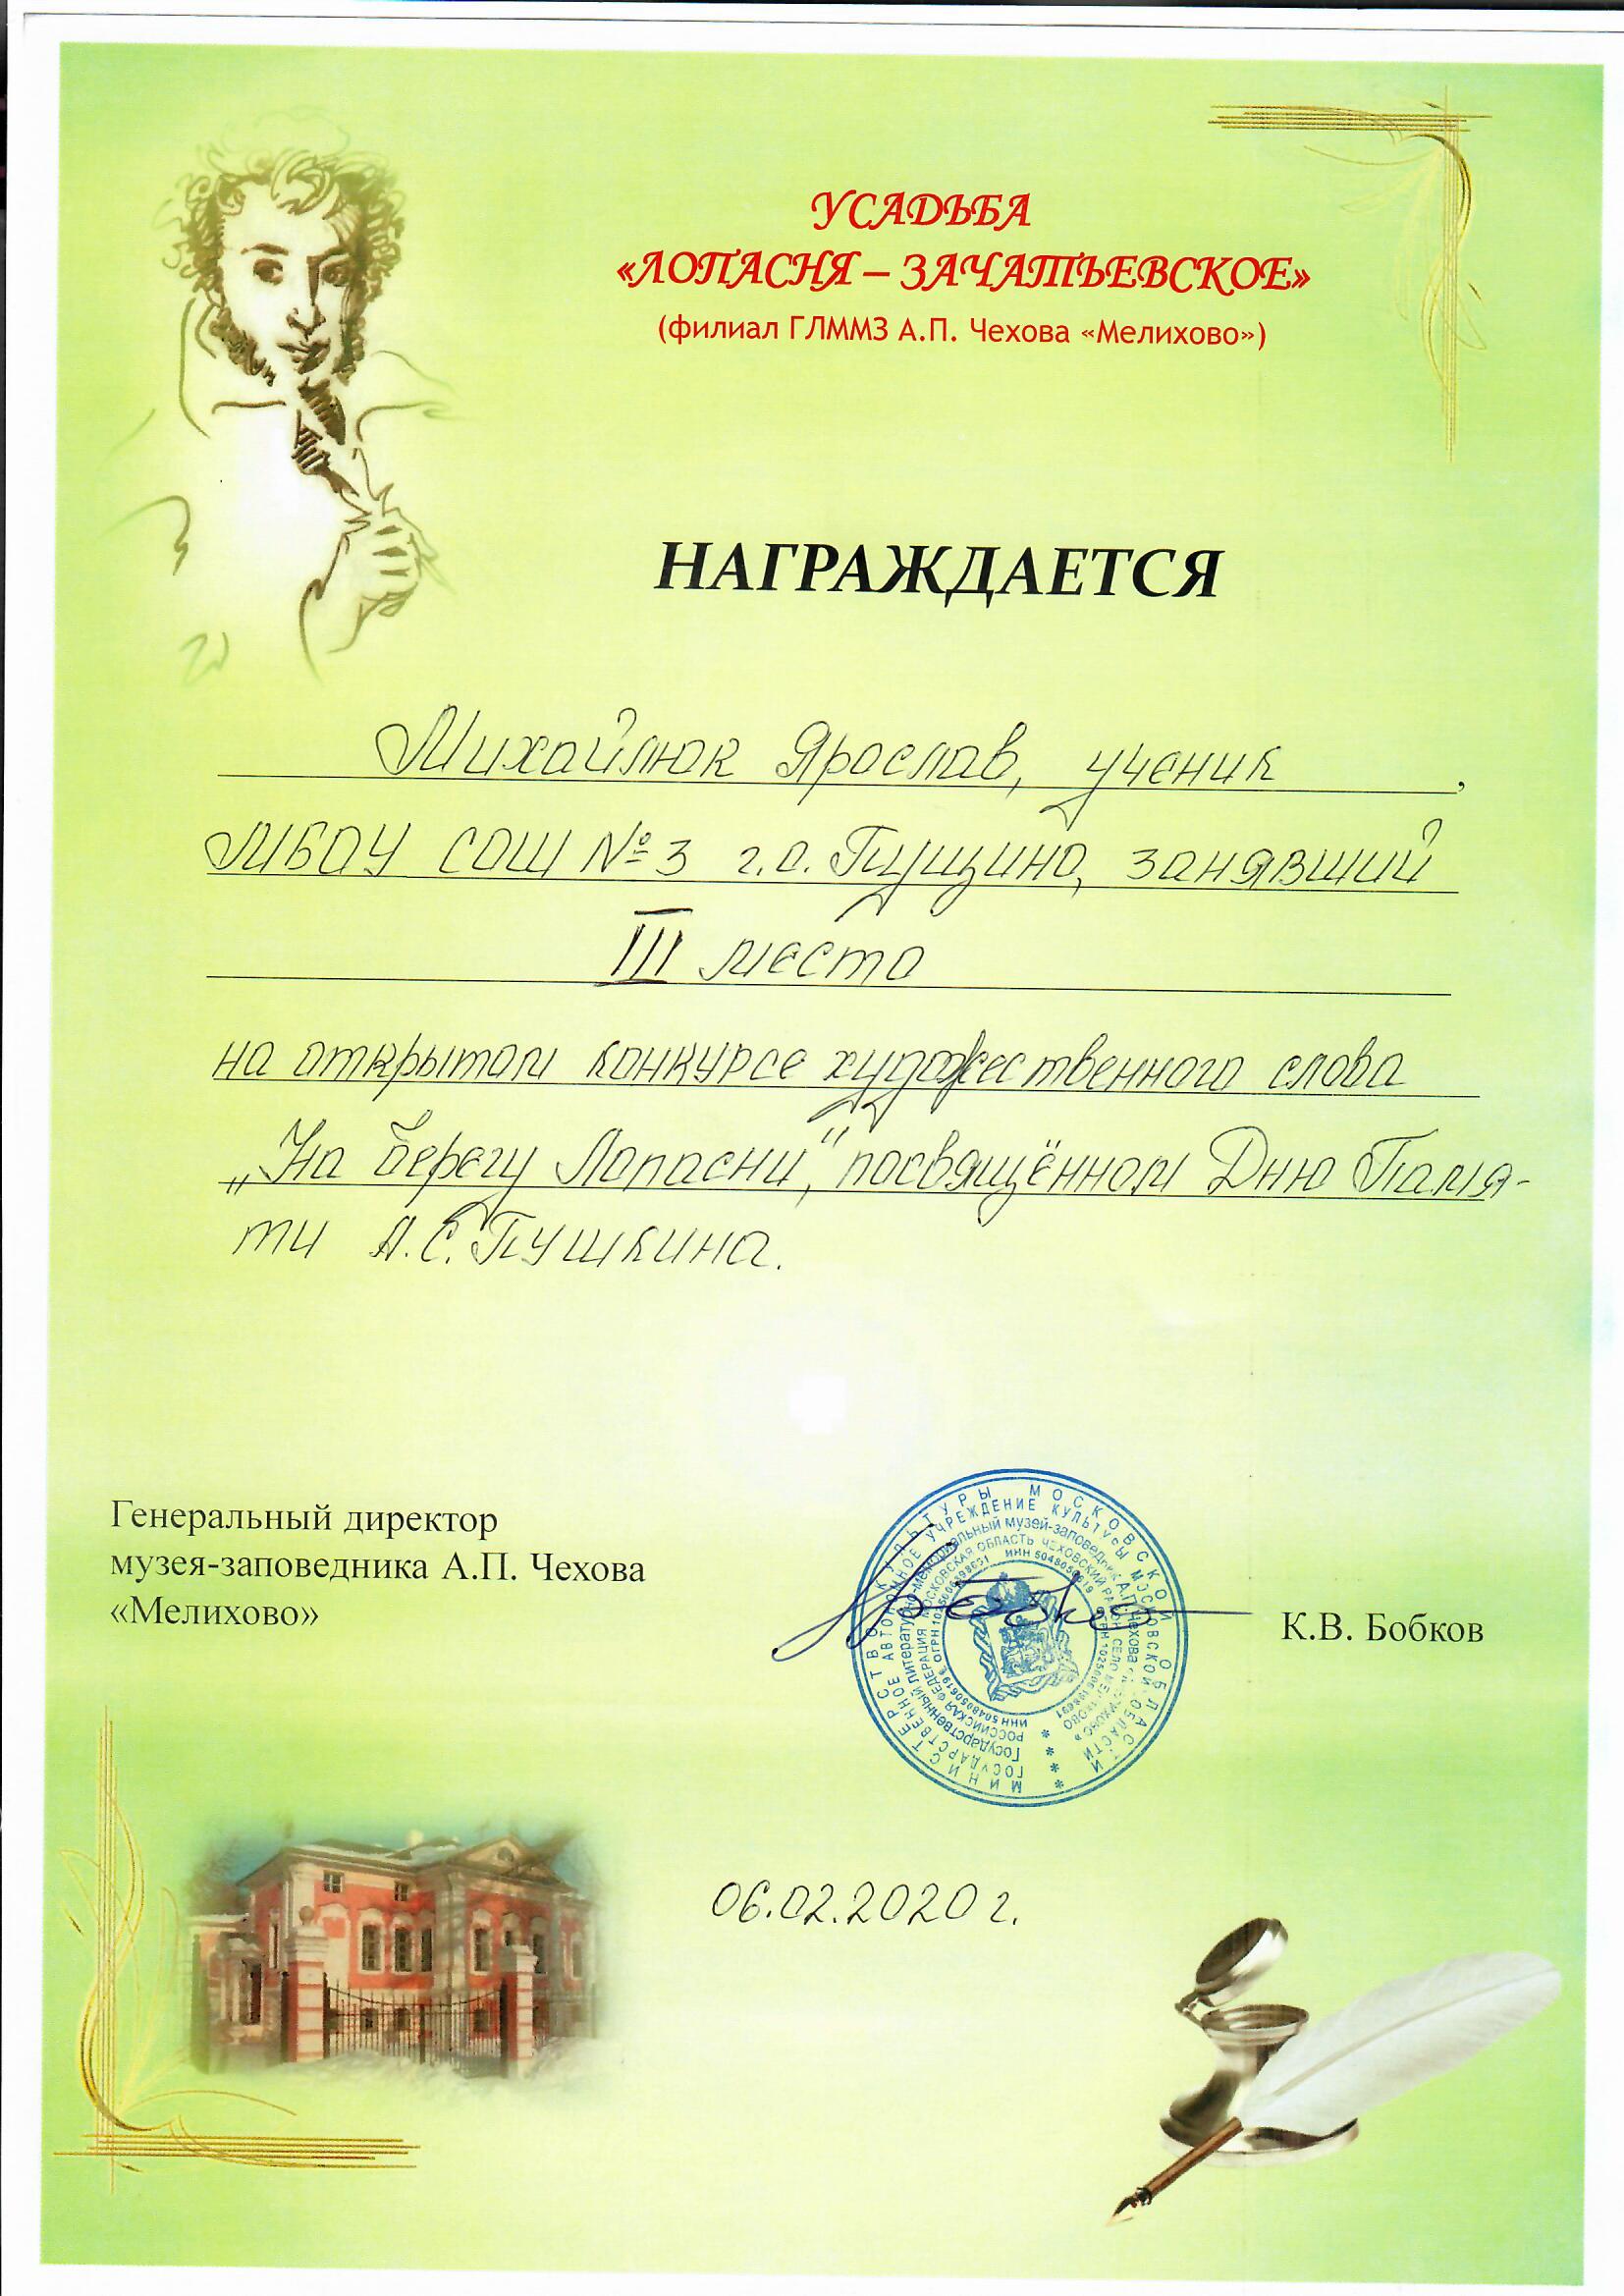 УСАДЬБА
«ЛОПАСНЯ – ЗАЧАТЬЕВСКОЕ»
(филиал ГЛММЗ А.П. Чехова «Мелихово»)
НАГРАЖДАЕТСЯ
Михайлюк Ярослав, ученик ,
МБОУ СОШ № 3 г.о. Пущино, занявший
III место
на открытом конкурсе художественного слова
„На берегу Лопасни", посвящённом Дню Памя-
ти А.С. Пушкина.
Генеральный директор
музея-заповедника А.П. Чехова
«Мелихово»
К.В. Бобков
МИНИСТЕРСТВО КУЛЬТУРЫ МОСКОВСКОЙ ОБЛАСТИ
ГОСУДАРСТВЕННОЕ АВТОНОМНОЕ УЧРЕЖДЕНИЕ КУЛЬТУРЫ МОСКОВСКОЙ ОБЛАСТИ
Государственный литературно-мемориальный музей-заповедник А.П. Чехова
РОССИЙСКАЯ ФЕДЕРАЦИЯ МОСКОВСКАЯ ОБЛАСТЬ ЧЕХОВСКИЙ РАЙОН СЕЛО МЕЛИХОВО
06.02.2020 г.